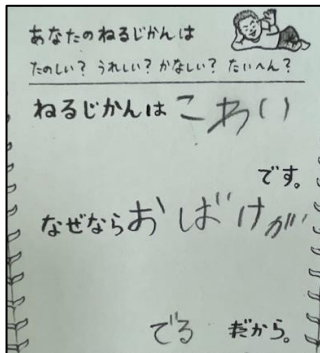 あなたのねるじかんは
たのしい? うれしい? かなしい? たいへん?
ねるじかんは こわい
です。
なぜなら おばけが
でる だから。